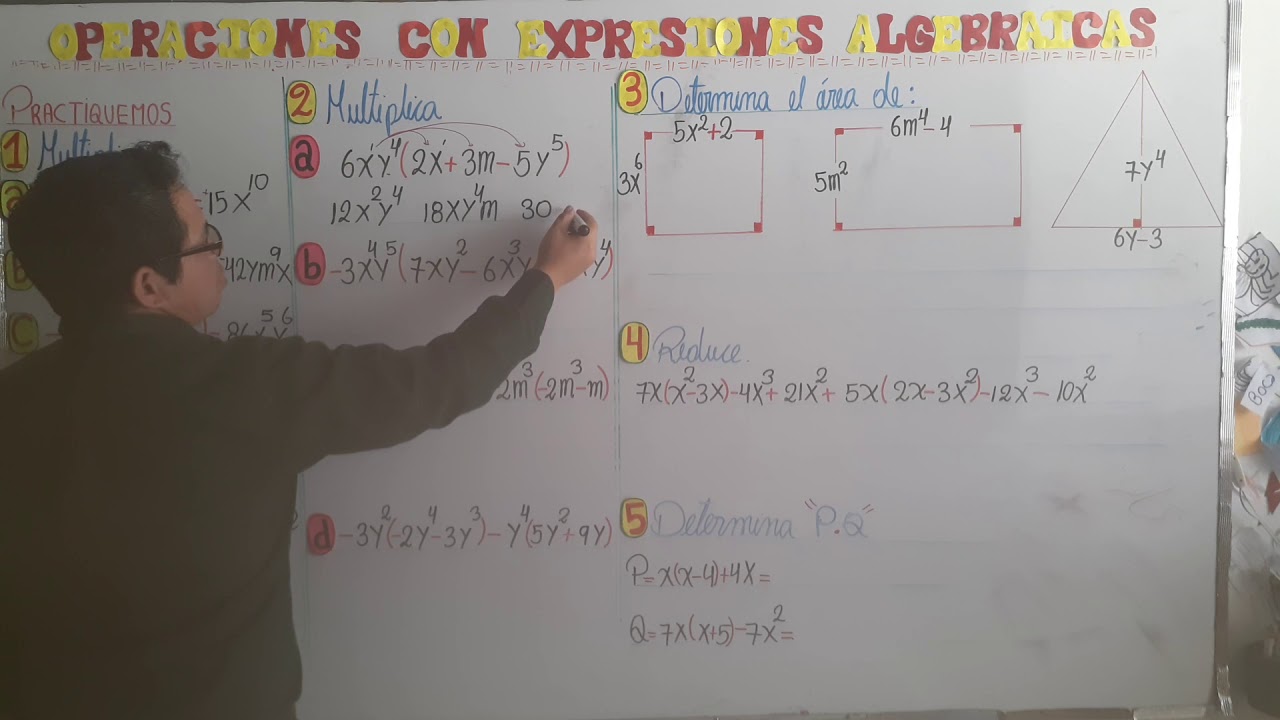 OPERACIONES CON EXPRESIONES ALGEBRAICAS
PRACTIQUEMOS
1
=15x¹⁰
42ym⁹x
C
2 Multiplica
a 6x¹y⁴(2x¹+3m-5y⁵)
12x²y⁴ 18xy⁴m 30
b -3x⁴y⁵(7xy²-6x³y
y⁴)
2m³(-2m³-m)
d -3y²(-2y⁴-3y³)-y⁴(5y²+9y)
3 Determina el área de:
5x²+2
3x⁶
6m⁴-4
5m²
7y⁴
6y-3
4 Reduce.
7x(x²-3x)-4x³+21x²+5x(2x-3x²)-12x³-10x²
5 Determina "P.Q"
P=x(x-4)+4x=
Q=7x(x+5)-7x²=